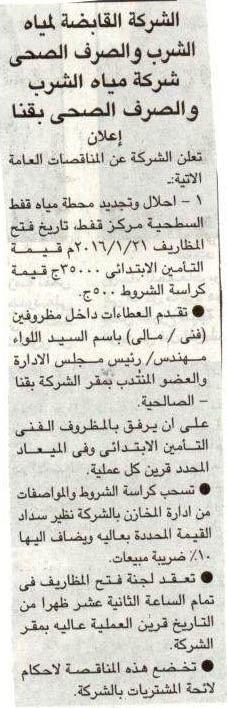 الشركة القابضة لمياه
الشرب والصرف الصحى
شركة مياه الشرب
والصرف الصحى بقنا
إعلان
تعلن الشركة عن المناقصات العامة
الاتية:ـ
١ – احلال وتجديد محطة مياه قفط
السطحية مركز قفط، تاريخ فتح
المظاريف ٢٠١٦/١/٢١م قيمة
التأمين الابتدائى ٣٥٠٠٠ج قيمة
كراسة الشروط ٥٠٠ج.
● تقدم العطاءات داخل مظروفين
(فنى / مالى) باسم السيد اللواء
مهندس/ رئيس مجلس الادارة
والعضو المنتدب بمقر الشركة بقنا
– الصالحية.
على ان يرفق بالمظروف الفنى
التأمين الابتدائى وفى الميعاد
المحدد قرين كل عملية.
● تسحب كراسة الشروط والمواصفات
من ادارة المخازن بالشركة نظير سداد
القيمة المحددة بعاليه ويضاف اليها
١٠٪ ضريبة مبيعات.
● تعقد لجنة فتح المظاريف فى
تمام الساعة الثانية عشر ظهرا من
التاريخ قرين العملية عاليه بمقر
الشركة.
● تخضع هذه المناقصة لاحكام
لائحة المشتريات بالشركة.